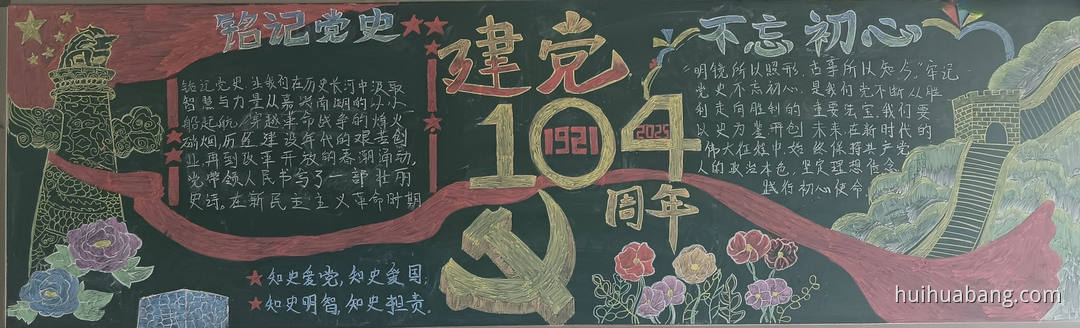 铭记党史
铭记党史,让我们在历史长河中汲取
智慧与力量从嘉兴南湖的
船起航,穿越革命战争的烽火
硝烟历经建设年代的艰苦创
业再到改革开放的春潮涌动,
党带领人民书写了一部壮丽
史诗。在新民主主义革命时期
知史爱党,知史爱国.
知史明智,知史担责.
建党
104
1921
2025
周年
不忘初心
“明镜所以照形,古事所以知今。”牢记
党史不忘初心,是我们党不断从胜
利走向胜利的重要法宝。我们要
以史为鉴开创未来在新时代的
伟大征程中始终保持共产党
人的政治本色,坚定理想信念
践行初心使命.
huihuabang.com